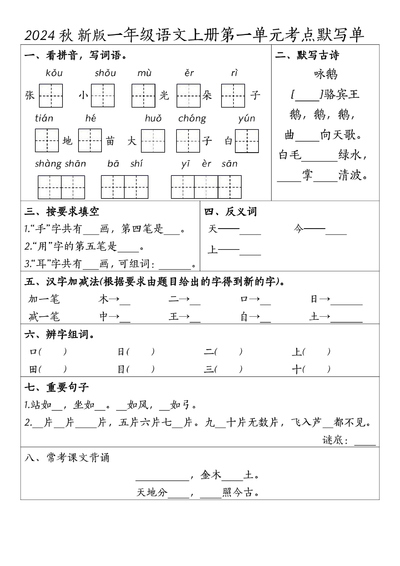 2024 秋 新版一年级语文上册第一单元考点默写单
一、看拼音，写词语。
kǒu shǒu mù ěr rì
张 小 光 朵 子
tián hé huǒ chóng yún
地 苗 大 子 白
shàng shān bā shí yī èr sān
二、默写古诗
咏鹅
[____]骆宾王
鹅，鹅，鹅，
曲____向天歌。
白毛______绿水，
_____掌____清波。
三、按要求填空
1.“手”字共有___画，第四笔是___。
2.“用”字的第五笔是____。
3.“耳”字共有___画，可组词：______。
四、反义词
天——____ 今——____
上——____
五、汉字加减法(根据要求由题目给出的字得到新的字)。
加一笔 木→__ 二→__ 口→__ 日→______
减一笔 中→__ 王→__ 自→__ 土→______
六、辨字组词。
口( ) 日( ) 二( ) 上( )
田( ) 目( ) 三( ) 十( )
七、重要句子
1.站如__，坐如__。__如风，__如弓。
2.__片__片____片，五片六片七__片。九__十片无数片，飞入芦__都不见。
谜底：____
八、常考课文背诵
__________，金木____土。
天地分____，____照今古。